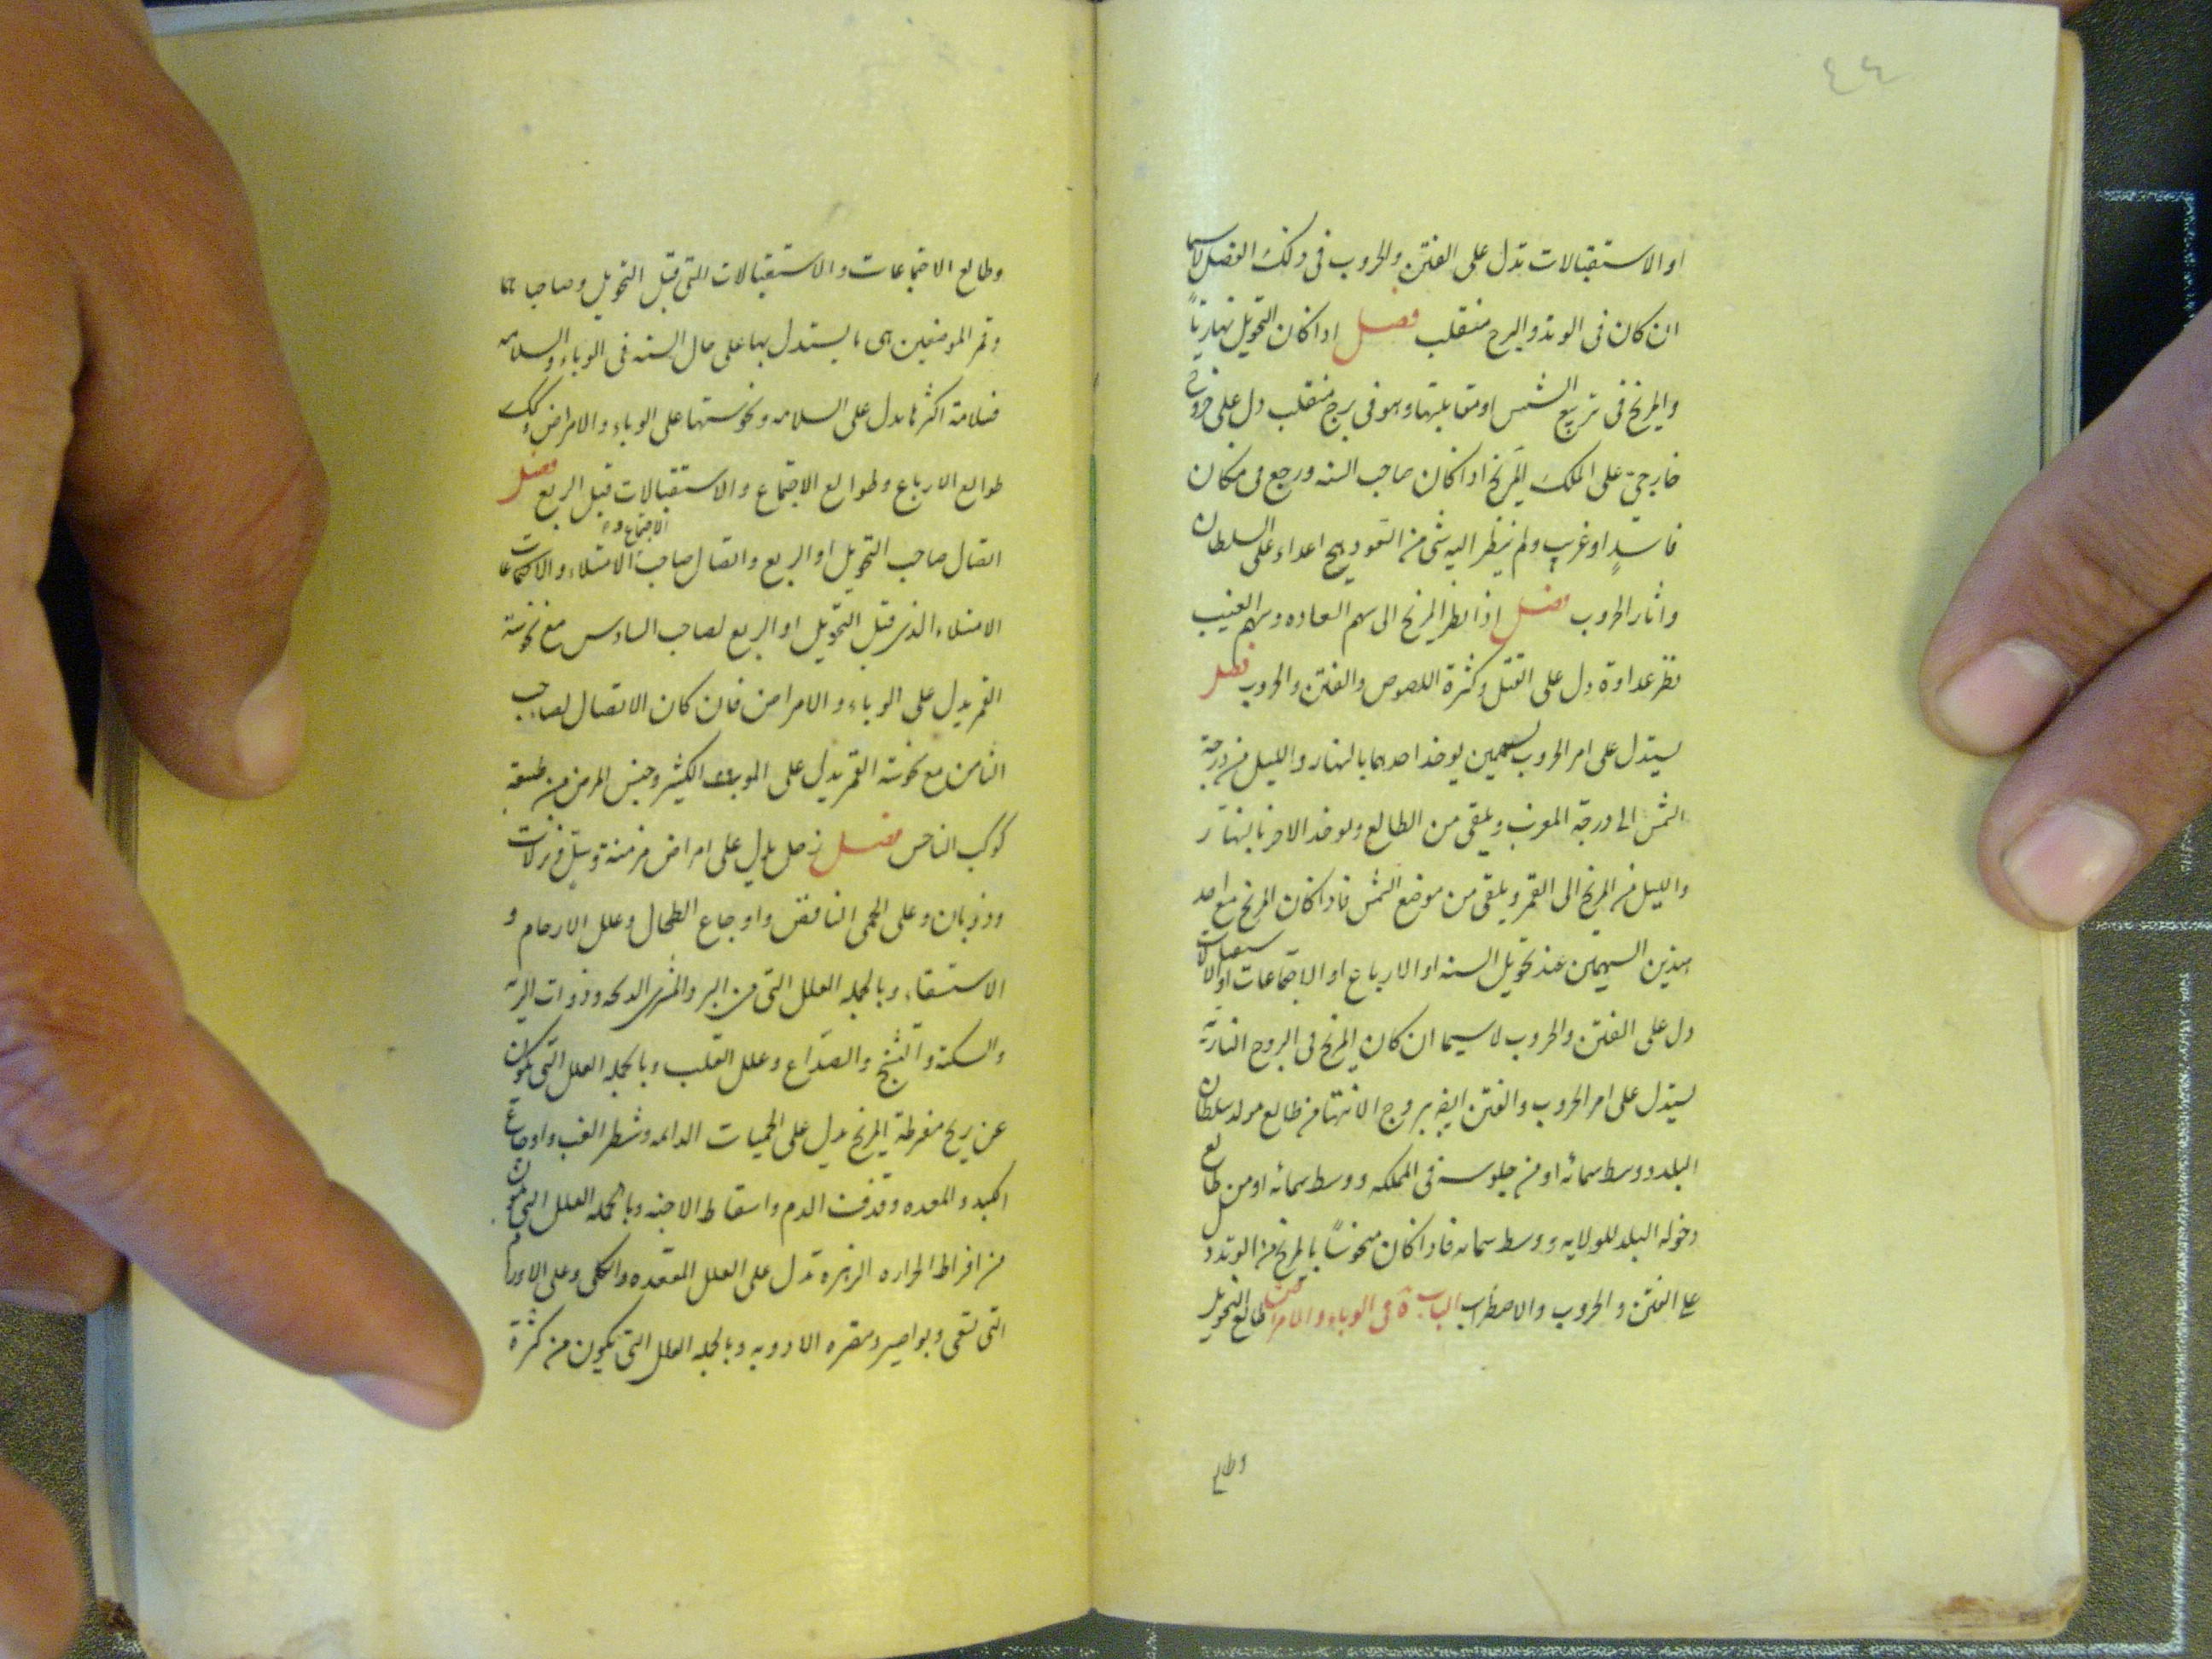 ٤٤
او الاستقبالات تدل على الفتن والحروب فى ذلك الفصل لاسيما
ان كان فى الوتد والبرج منقلب فصل اذا كان التحويل نهاريًا
والمريخ فى تربيع الشمس او مقابلتها وهو فى برج منقلب دل على خروج
خارجى على الملك المريخ اذا كان صاحب السنه ورجع فى مكان
فاسد او غريب ولم ينظر اليه شى من السعود يهيج اعداء على السلطان
واثار الحروب فصل اذا نظر المريخ الى سهم السعاده وسهم الغيب
نظر عداوة دل على القتل وكثرة اللصوص والفتن والحروب فصل
يستدل على امر الحروب بسهمين يوخذ احدهما بالنهار والليل من درجة
الشمس الى درجة المغرب ويلقى من الطالع ويوخذ الاخر بالنهار
والليل من المريخ الى القمر ويلقى من موضع الشمس فاذا كان المريخ مع احد
هذين السهمين عند تحويل السنه او الارباع او الاجتماعات او الاستقبالات
دل على الفتن والحروب لاسيما ان كان المريخ فى البروج النارية
يستدل على امر الحروب والفتن ببروج الانتها من طالع مولد سلطان
البلد ووسط سمائه او من جلوسه فى المملكه ووسط سمائه او من طالع
دخوله البلد للولايه ووسط سمائه فاذا كان منحوسًا بالمريخ من الوتد دل
على الفتن والحروب والاضطراب الباب فى الوباء والامراض طالع التحويل
وطالع
وطالع الاجتماعات والاستقبالات التى قبل التحويل وصاحباهما
وقمر الموضعين هى ما يستدل بها على حال السنه فى الوباء والسلامه
فسلامة اكثرها يدل على السلامه ونحوستها على الوباء والامراض وكك
طوالع الارباع وطوالع الاجتماع والاستقبالات قبل الربع فصل
اتصال صاحب التحويل او الربع واتصال صاحب الاجتماع و الامتلاء والاجتماعات
الامتلاء الذى قبل التحويل او الربع لصاحب السادس مع نحوسة
القمر يدل على الوباء والامراض فان كان الاتصال لصاحب
الثامن مع نحوسة القمر يدل على الموت الكثير وجنس المرض من طبيعة
كوكب الناحس فصل زحل يدل على امراض مزمنة وسل ونزلات
وذوبان وعلى الحمى النافض واوجاع الطحال وعلل الارحام و
الاستسقاء وبالجمله العلل التى من البرد المشترى وذوات الريه
والسكتة والتشنج والصداع وعلل القلب وبالجمله العلل التى تكون
عن ريح مفرطة المريخ يدل على الحميات الدائمه وشطر الغب واوجاع
الكبد والمعده وقذف الدم واسقاط الاجنه وبالجمله العلل التى تكون
من افراط الحراره الزهره تدل على العلل المعده والكلى وعلى الاورام
التى تسعى وبواصير الادويه وبالجمله العلل التى تكون من كثرة